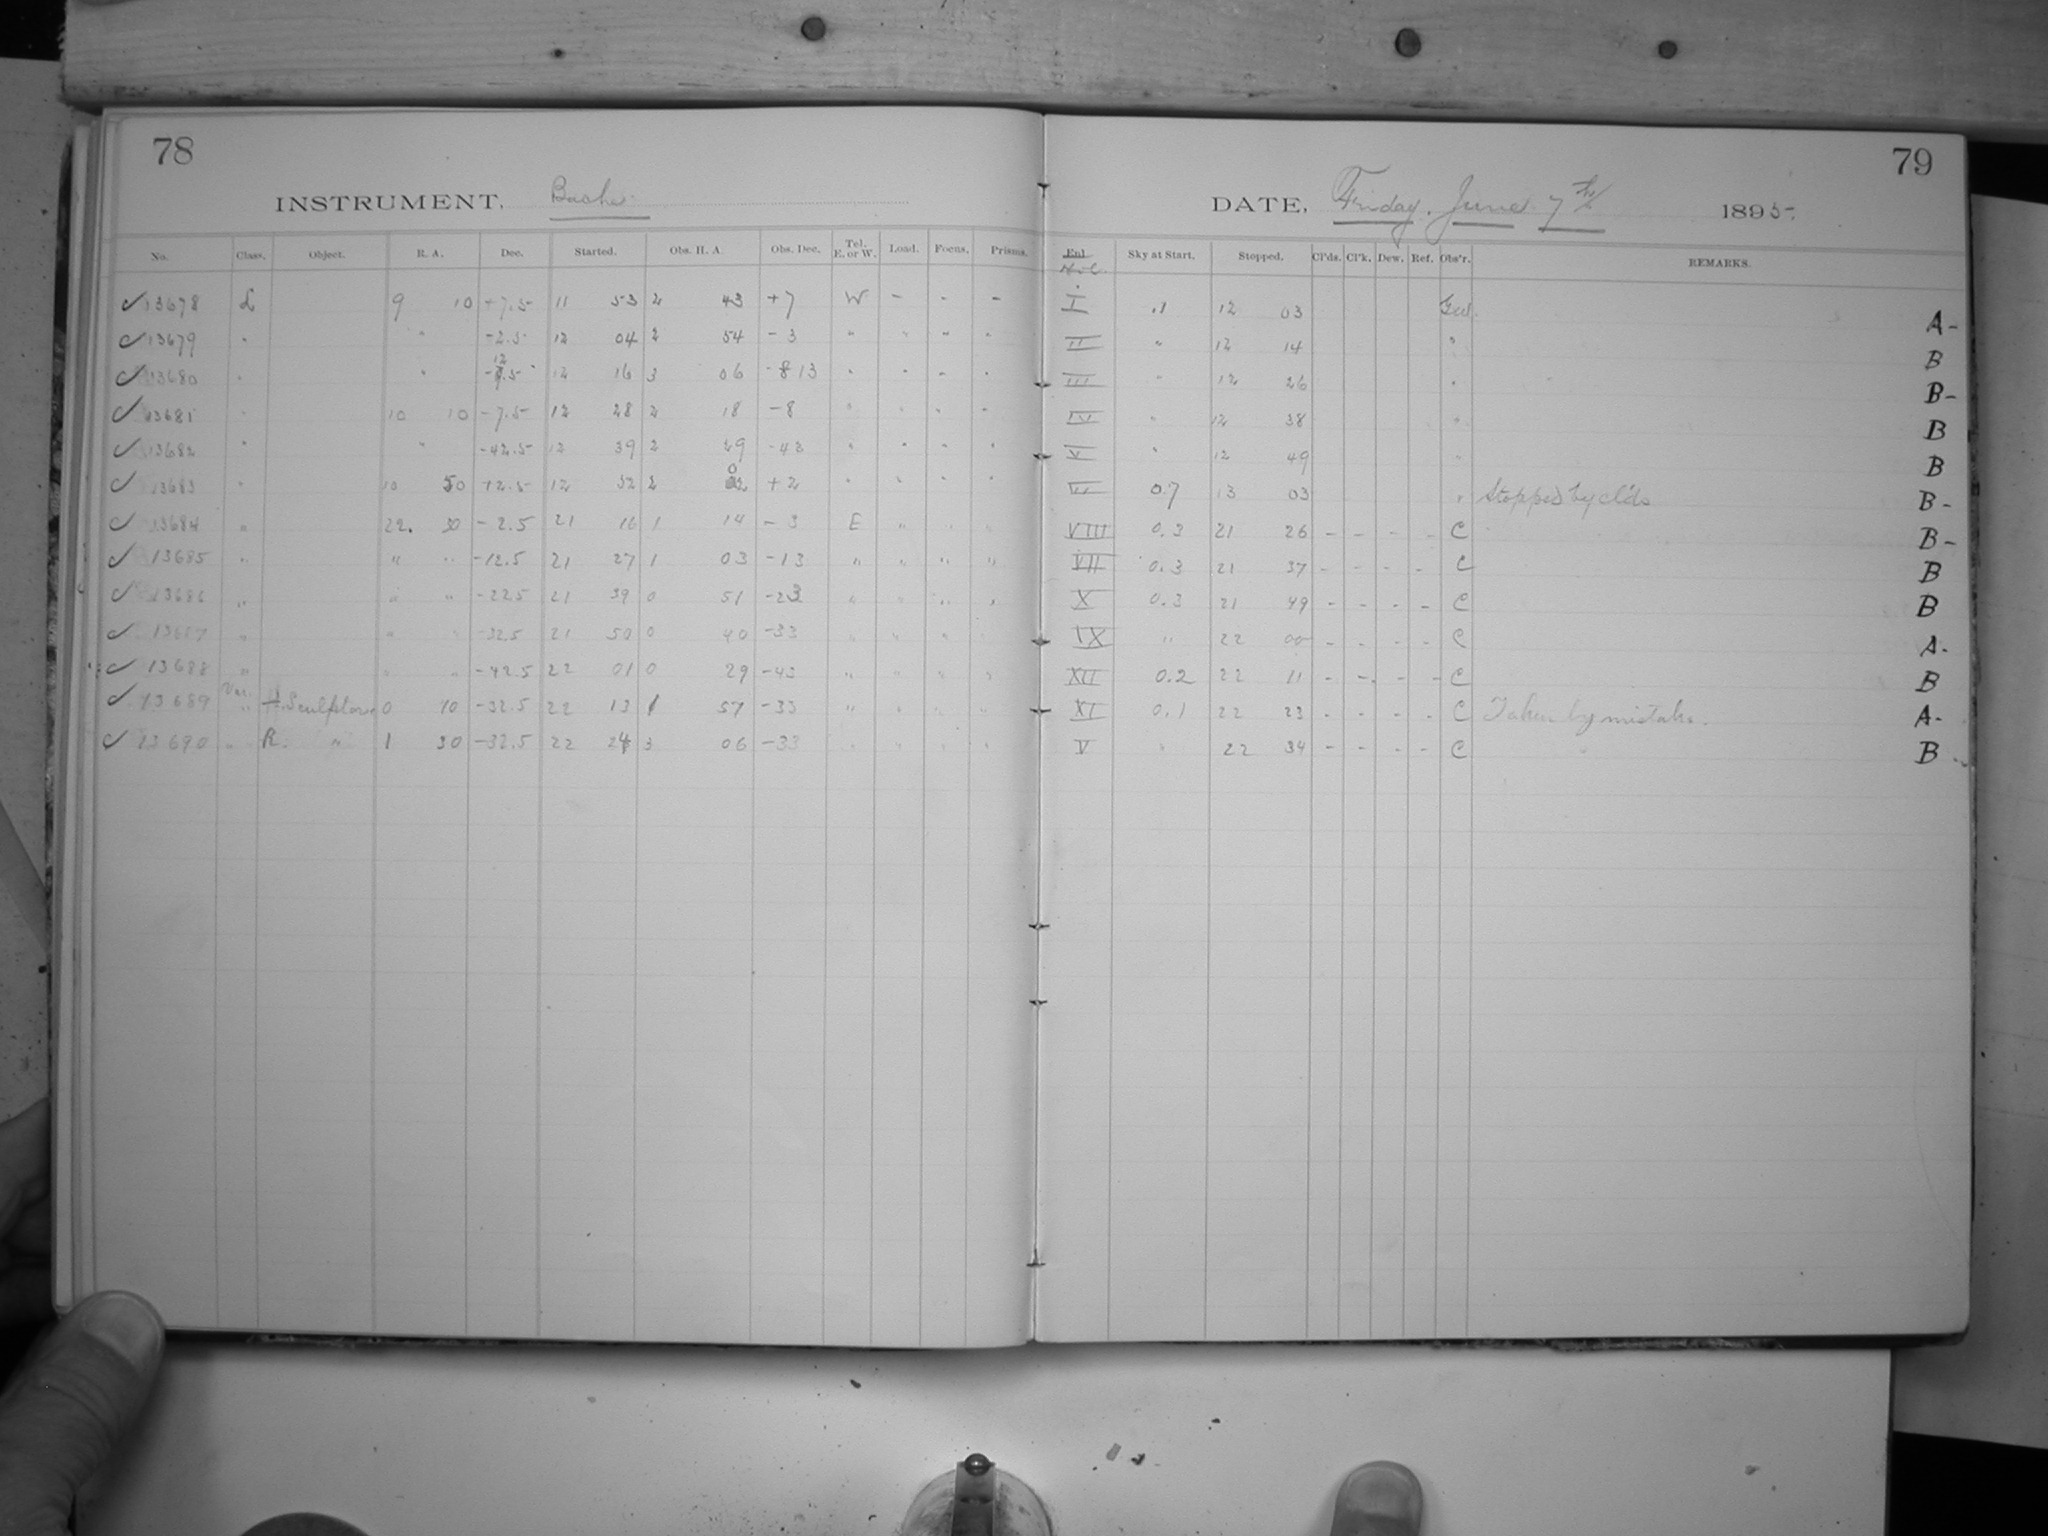 78
INSTRUMENT, Bache
No. Class. Object. R. A. Dec. Started. Obs. H. A. Obs. Dec. Tel. E. or W. Load. Focus. Prisms.
✓ 13678 L 9 10 +7.5 11 53 2 43 +7 W - - -
✓ 13679 " " -2.5 12 04 2 54 -3 " " " "
✓ 13680 " " 12 16 3 06 13 " " " "
✓ 13681 " 10 10 -7.5 12 28 2 18 -8 " " " "
✓ 13682 " " -42.5 12 39 2 29 -43 " " " "
✓ 13683 " 10 50 +2.5 12 52 2 02 +2 " " " "
✓ 13684 " 22 30 -2.5 21 16 1 14 -3 E " " "
✓ 13685 " " " -12.5 21 27 1 03 -13 " " " "
✓ 13686 " " " -22.5 21 39 0 51 -23 " " " "
✓ 13687 " " " -32.5 21 50 0 40 -33 " " " "
✓ 13688 " " " -42.5 22 01 0 29 -43 " " " "
✓ 13689 Var. Sculptoris 0 10 -32.5 22 13 1 57 -33 " " " "
✓ 13690 " R. " 1 30 -32.5 22 24 3 06 -33 " " " "
79
DATE, Friday. June 7th 1895
Enl Sky at Start. Stopped. Cl'ds. Cl'k. Dew. Ref. Obs'r. REMARKS.
I .1 12 03 A-
II " 12 14 " B
III " 12 26 " B-
IV " 12 38 " B
V " 12 49 " B
VI 0.7 13 03 " Stopped by clds B-
VIII 0.3 21 26 - - - - C B-
VII 0.3 21 37 - - - - C B
X 0.3 21 49 - - - - C B
IX " 22 00 - - - - C A-
XII 0.2 22 11 - - - - C B
XI 0.1 22 23 - - - - C Taken by mistake. A-
V " 22 34 - - - - C B